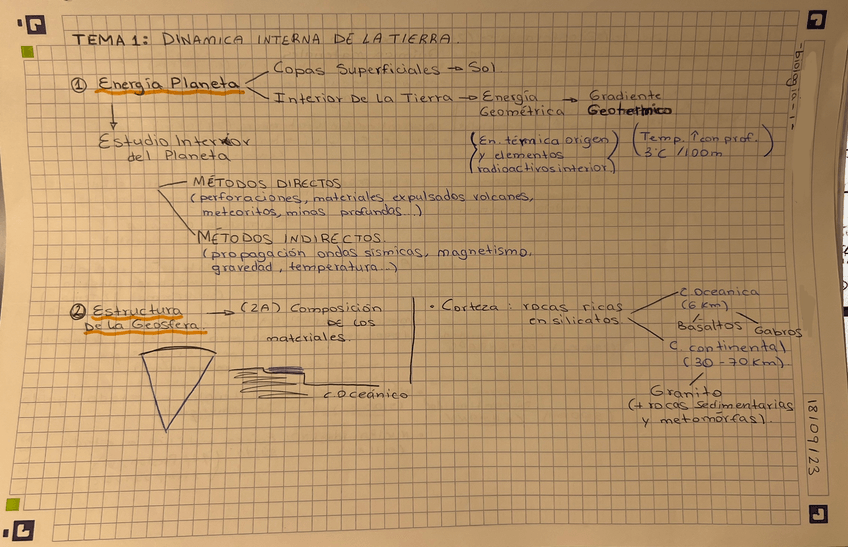 TEMA 1: DINAMICA INTERNA DE LA TIERRA.
-biología-1-
① Energía Planeta
Copas Superficiales → Sol
Interior De la Tierra → Energía Geométrica → Gradiente Geotermico
(En. térmica origen
y elementos
radioactivos interior)
(Temp. ↑ con prof.
3°C /100m)
Estudio Interior
del Planeta
MÉTODOS DIRECTOS
(perforaciones, materiales expulsados volcanes,
meteoritos, minas profundas...)
MÉTODOS INDIRECTOS.
(propagación ondas sísmicas, magnetismo,
gravedad, temperatura...)
② Estructura
De la Geosfera.
→ (2A) Composición
DE LOS
materiales.
C.Oceánico
• Corteza: rocas ricas
en silicatos
C.Oceánica
(6 Km)
Basaltos Gabros
C. continental
(30-70Km)
Granito
(+ rocas sedimentarias
y metamórfas).
18/09/23